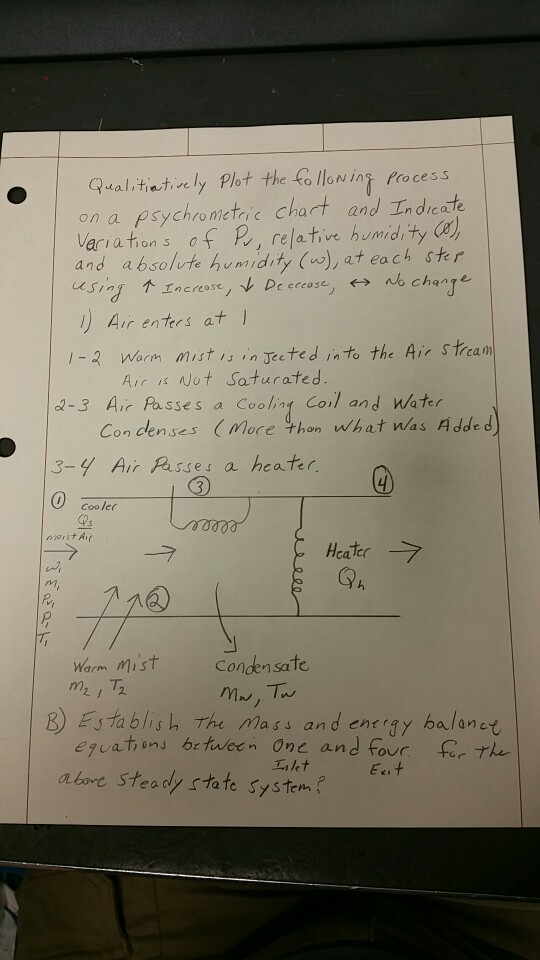 Qualitiatively Plot the following Process
on a psychrometric chart and Indicate
Variations of Pv, relative humidity (Ø),
and absolute humidity (w), at each step
using ↑ Increase, ↓ Decrease, ↔ No change
1) Air enters at 1
1-2 Warm Mist is injected into the Air stream
Air is Not Saturated.
2-3 Air Passes a Cooling Coil and Water
Condenses (More than what was Added)
3-4 Air Passes a heater.
① ③ ④
cooler
Qs
moist Air
w1
m1
Pv1
P1
T1
Heater
Qh
②
Warm Mist
m2, T2
Condensate
Mw, Tw
B) Establish the Mass and energy balance
equations between one and four for the
Inlet Exit
above steady state system?